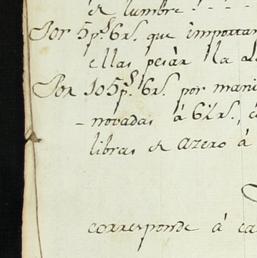 de lumbre
Por 5p.s 6r.s que importan
ellas pesàr la
Por 105p.s 6r.s por mani
novadas à 6½r.s,
libras de azero à
corresponde á ca